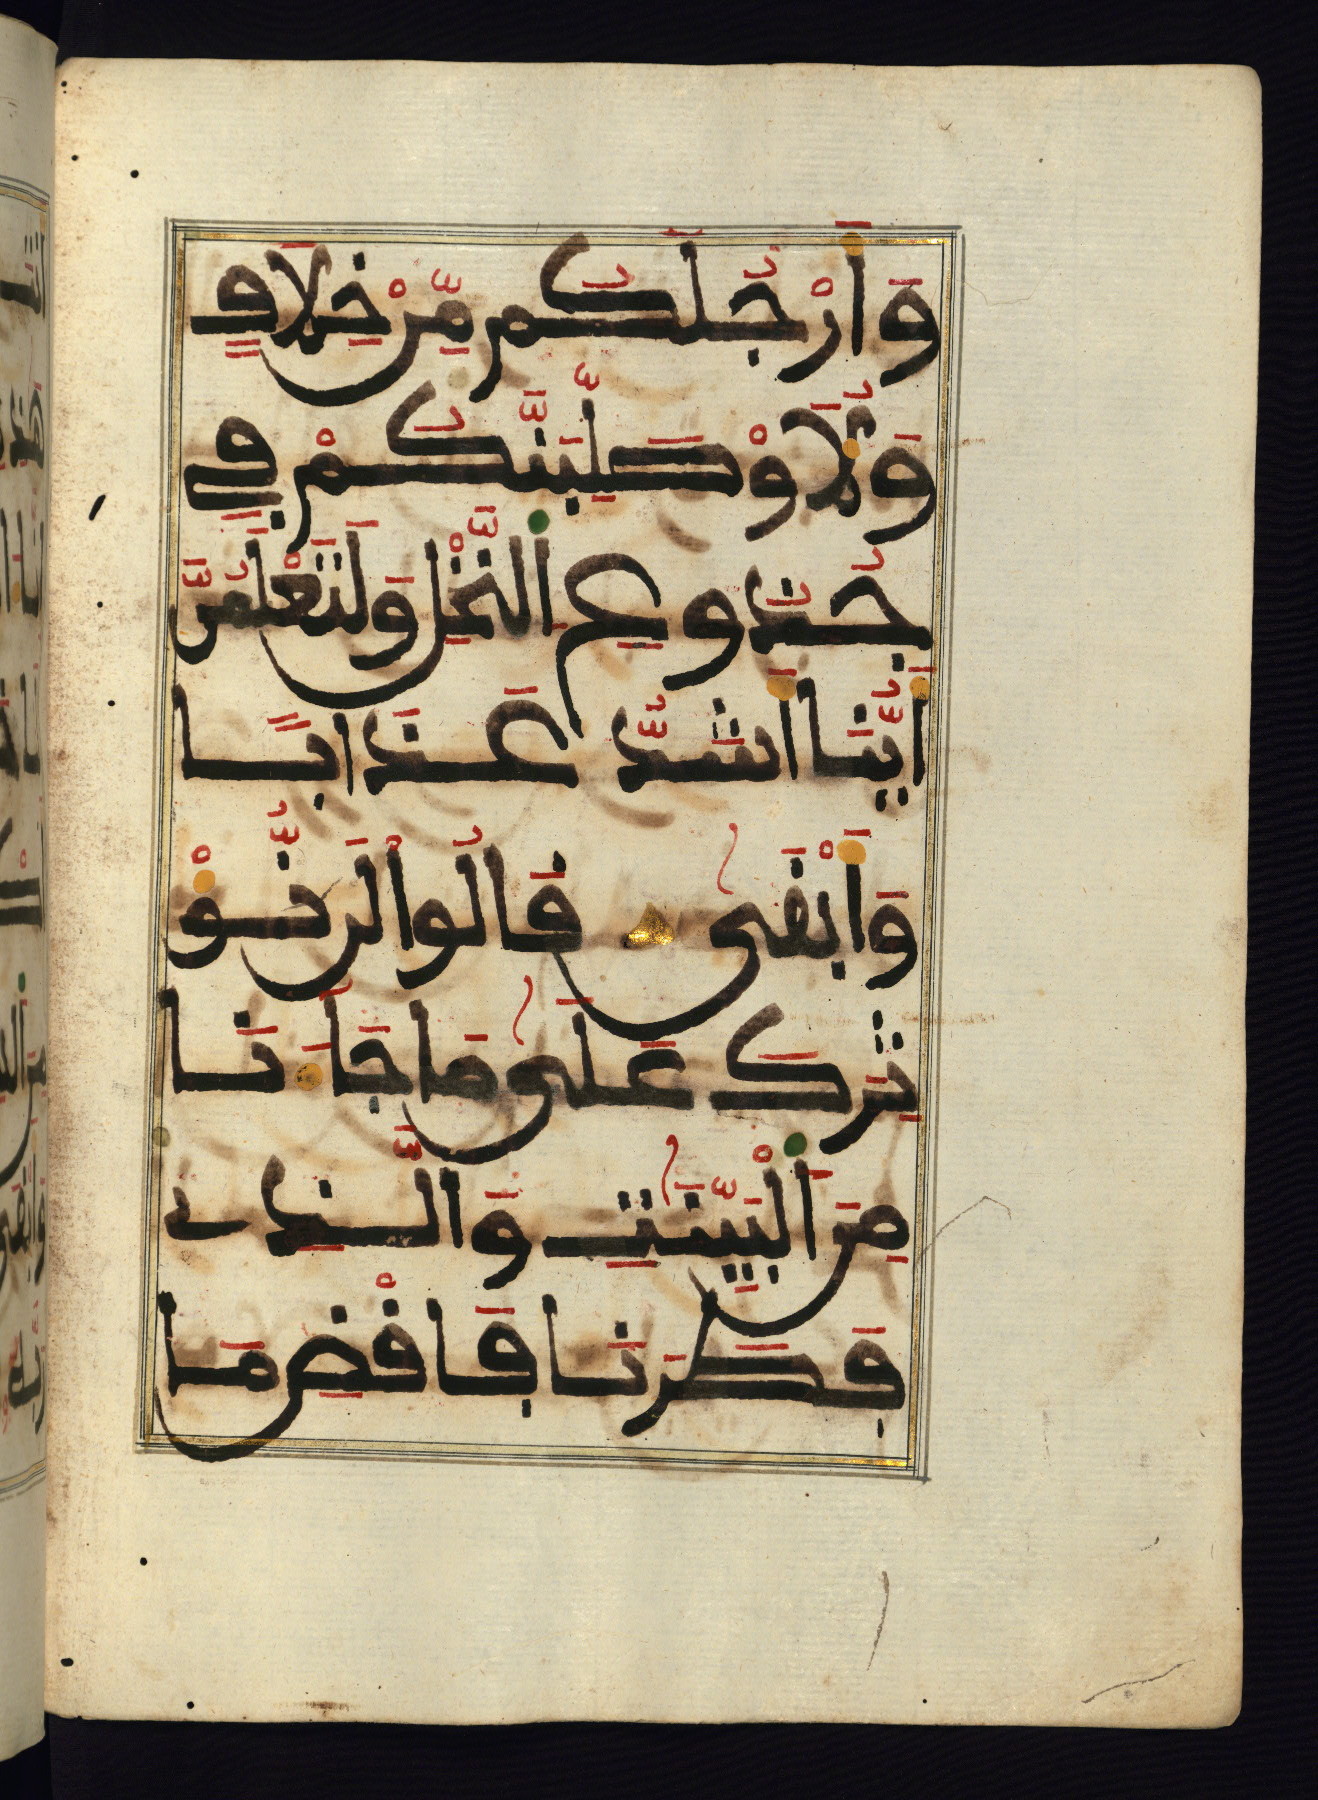 وَأَرْجُلَكُم مِّنْ خِلَٰفٍ
وَلَأُوصَلِّبَنَّكُمْ فِي
جُذُوعِ اَ۬لنَّخْلِ وَلَتَعْلَمُنَّ
أَيُّنَا أَشَدُّ عَذَابًا
وَأَبْقَىٰ قَالُوا لَن نُّؤْ
ثِرَكَ عَلَىٰ مَا جَآءَنَا
مِنَ اَ۬لْبَيِّنَٰتِ وَالَّذِے
فَطَرَنَا فَاقْضِ مَا